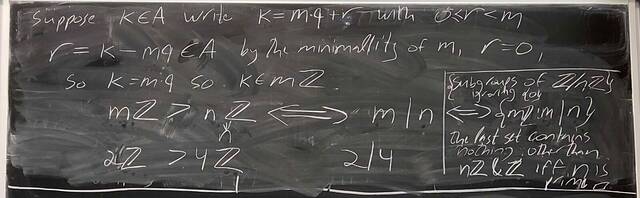 Suppose k∈A write k=m·q+r with 0≤r<m
r=k-mq∈A by the minimallity of m, r=0,
So k=m·q so k∈mℤ.
mℤ > nℤ ⟺ m|n
2ℤ > 4ℤ 2|4
{subgroups of ℤ/nℤ}
⟺ {mℤ: m|n}
The last set contains
nothing other than
nℤ & ℤ iff n is
prime